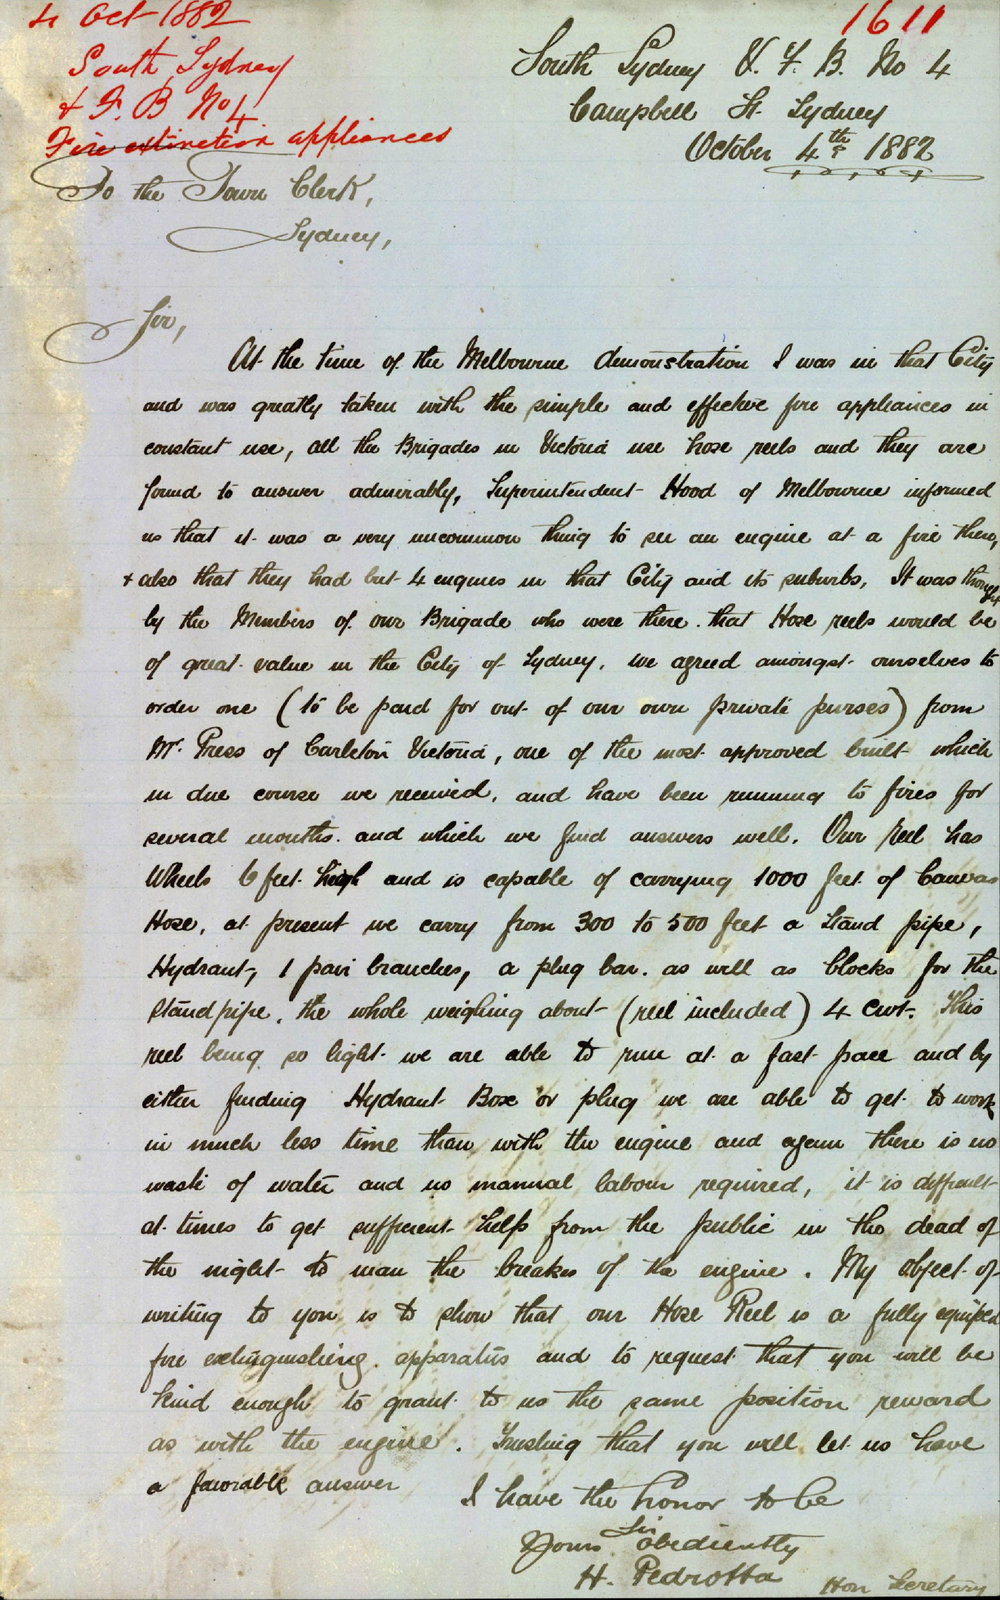 4 Oct 1882
1611
South Sydney
V. F. B No 4
Fire extinction appliances
South Sydney V. F. B. No 4
Campbell St. Sydney
October 4th 1882
To the Town Clerk,
Sydney,
Sir,
At the time of the Melbourne demonstration I was in that City
and was greatly taken with the simple and effective fire appliances in
constant use, all the Brigades in Victoria use hose reels and they are
found to answer admirably, Superintendent Hood of Melbourne informed
us that it was a very uncommon thing to see an engine at a fire there,
& also that they had but 4 engines in that City and its suburbs, It was thought
by the Members of our Brigade who were there that Hose reels would be
of great value in the City of Sydney. we agreed amongst ourselves to
order one (to be paid for out of our own private purses) from
Mr. Press of Carleton Victoria, one of the most approved built which
in due course we received, and have been running to fires for
several months and which we find answers well. Our reel has
Wheels 6 feet high and is capable of carrying 1000 feet of Canvas
Hose, at present we carry from 300 to 500 feet a stand pipe,
Hydrant, 1 pair branches, a plug bar. as well as blocks for the
standpipe, the whole weighing about (reel included) 4 cwt. This
reel being so light we are able to run at a fast pace and by
either finding Hydrant Box or plug we are able to get to work
in much less time than with the engine and again there is no
waste of water and no manual labour required, it is difficult
at times to get sufficient help from the public in the dead of
the night to man the breakes of the engine. My object of
writing to you is to show that our Hose Reel is a fully equiped
fire extinguishing apparatus and to request that you will be
kind enough to grant to us the same position reward
as with the engine. Trusting that you will let us have
a favorable answer
I have the honor to be
Sir
Yours obediently
H. Pedrotta
Hon Secretary